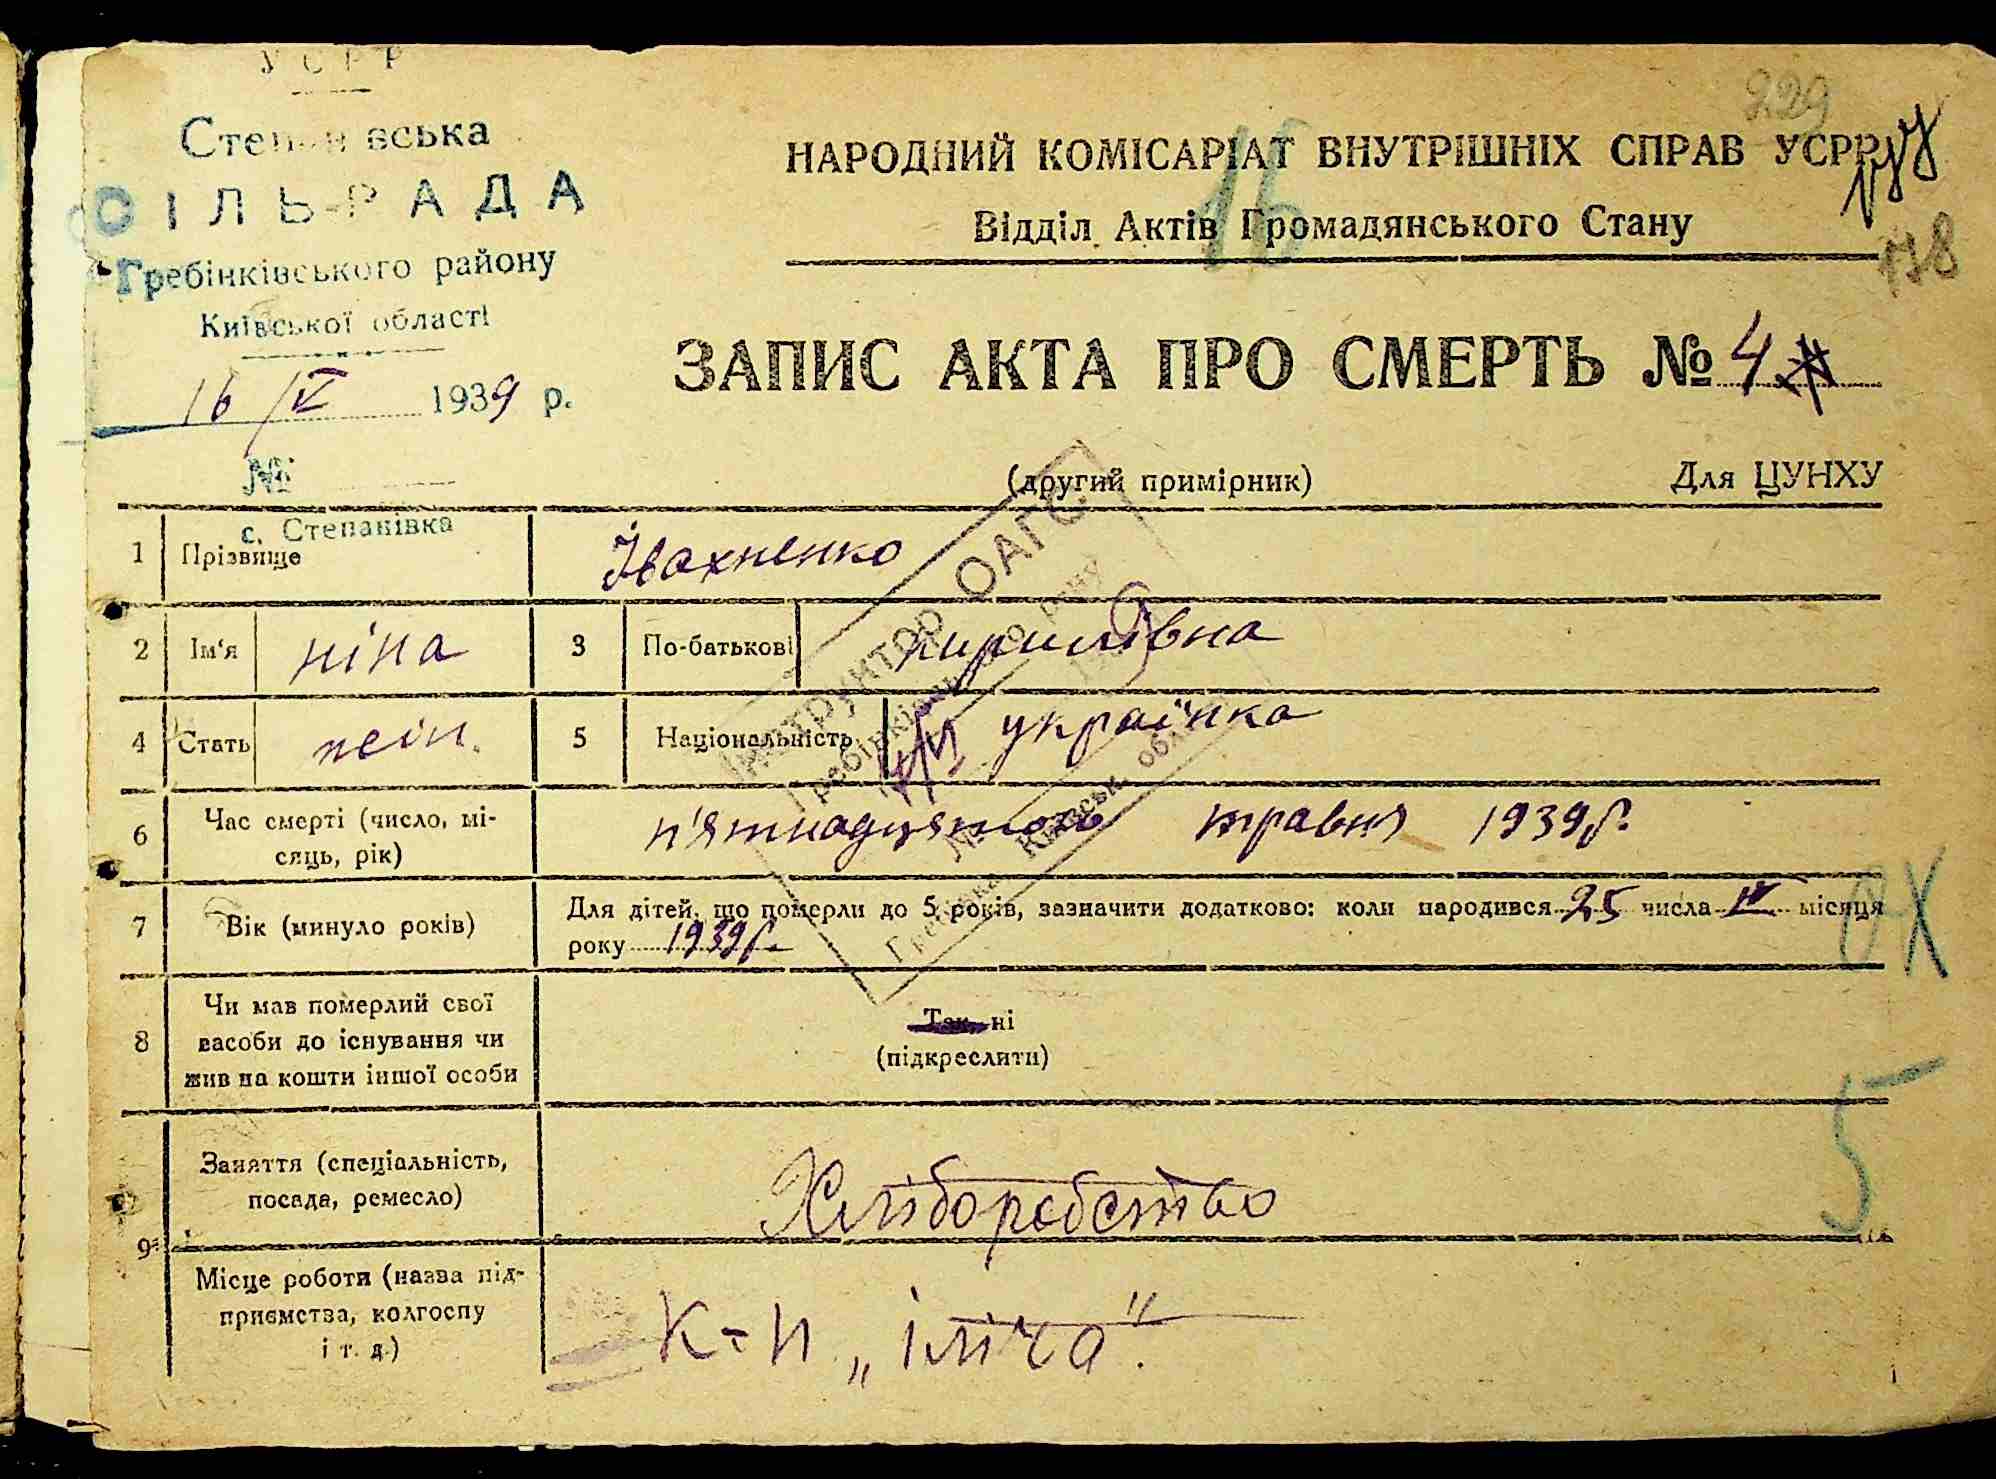 УСРР
Степанівська
СІЛЬ-РАДА
Гребінківського району
Київської області
16/V 1939 р.
№
с. Степанівка
229
НАРОДНИЙ КОМІСАРІАТ ВНУТРІШНІХ СПРАВ УСРР
16
Відділ Актів Громадянського Стану
178
ЗАПИС АКТА ПРО СМЕРТЬ № 4
(другий примірник) Для ЦУНХУ
1 Прізвище Івахненко
2 Ім'я ніна 3 По-батькові кирилівна
4 Стать жін. 5 Національність українка
6 Час смерті (число, мі-
сяць, рік) п'ятнадцятого травня 1939 р.
7 Вік (минуло років) Для дітей, що померли до 5 років, зазначити додатково: коли народився 25 числа IV місяця
року 1939 р.
8 Чи мав померлий свої
засоби до існування чи
жив на кошти іншої особи
Так, ні
(підкреслити)
9 Заняття (спеціальність,
посада, ремесло) Хліборобство
Місце роботи (назва під-
приємства, колгоспу
і т. д.) К-п „ілiча".
ОХ
5
Інструктор ОАГС
Гребінківського р-ну
Київськ. області